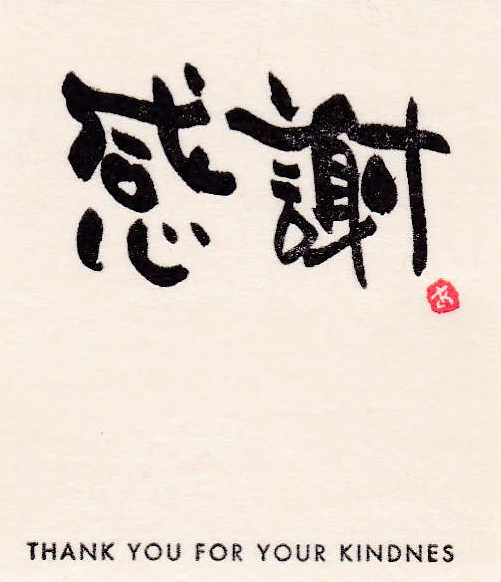 感謝
あ
THANK YOU FOR YOUR KINDNES